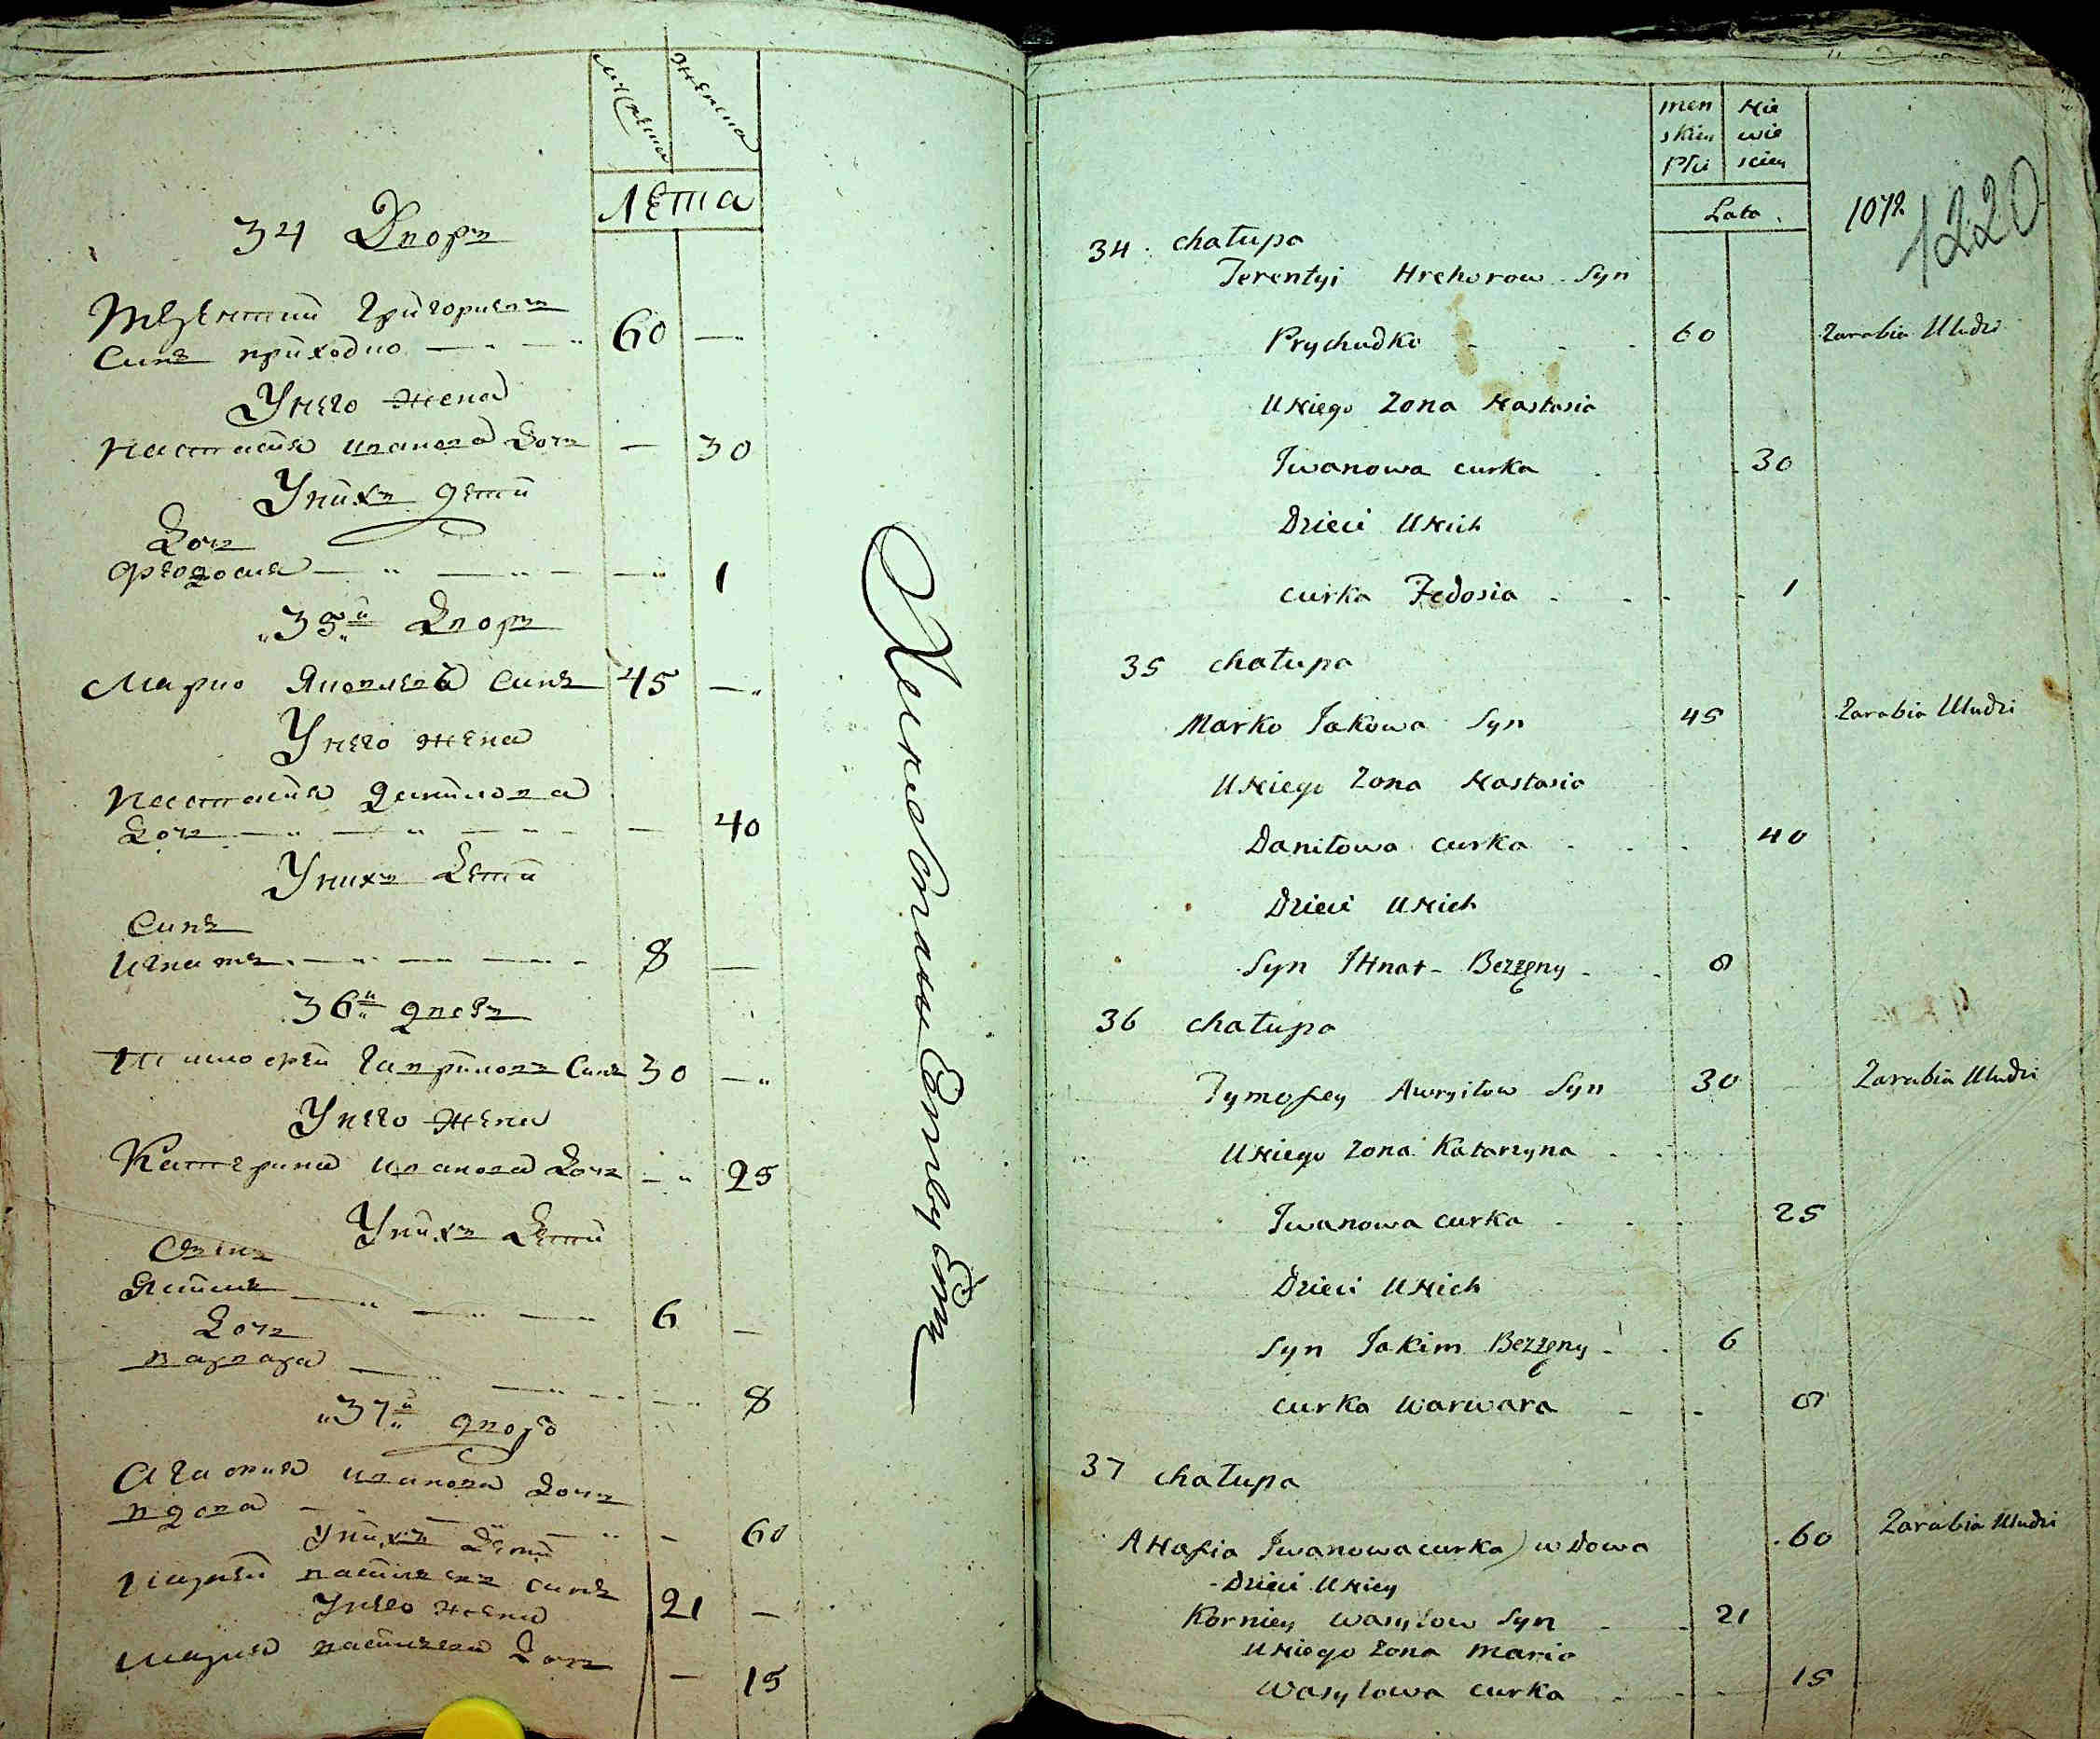 мужеска
женска
Лета
34 Дворъ
Терентий Григориевъ
Синъ приходко 60
У него жена
Настасия иванова Дочъ 30
У нихъ дети
Дочъ
Феодосия 1
35й Дворъ
Марко Яковлевъ Синъ 45
У него жена
Настасия данилова
Дочъ 40
У нихъ Дети
Синъ
Игнатъ 8
36й дворъ
Тимофей Гаврiиловъ Синъ 30
У него жена
Катерина иванова Дочъ 25
У нихъ Дети
Синъ
Якимъ 6
Дочъ
варвара 8
37й дворъ
Агафия иванова Дочъ
вдова 60
У нихъ Дети
василевъ синъ 21
У него жена
мария василева Дочъ 15
men Nie
skiey wie
Płci sciey
Lata
1072
1220
34 chałupa
Terentyi Hrehorow Syn
Prychudko 60 Zarabia U ludzi
U Niego Zona Nastasia
Iwanowa curka 30
Dzieci U Nich
curka Fedosia 1
35 chałupa
Marko Jakowa Syn 45 Zarabia U ludzi
U Niego Zona Nastasia
Daniłowa curka 40
Dzieci U Nich
Syn IHnat Bezżęny 8
36 chałupa
Tymofey Awryiłow Syn 30 Zarabia U ludzi
U Niego Zona Katarzyna
Iwanowa curka 25
Dzieci U Nich
Syn Jakim Bezżęny 6
curka Warwara 8
37 chałupa
AHafia Iwanowa curka wdowa 60 Zarabia U ludzi
Dzieci U Niey
Korniey Wasylow Syn 21
U Niego Zona Maria
Wasylowa curka 15